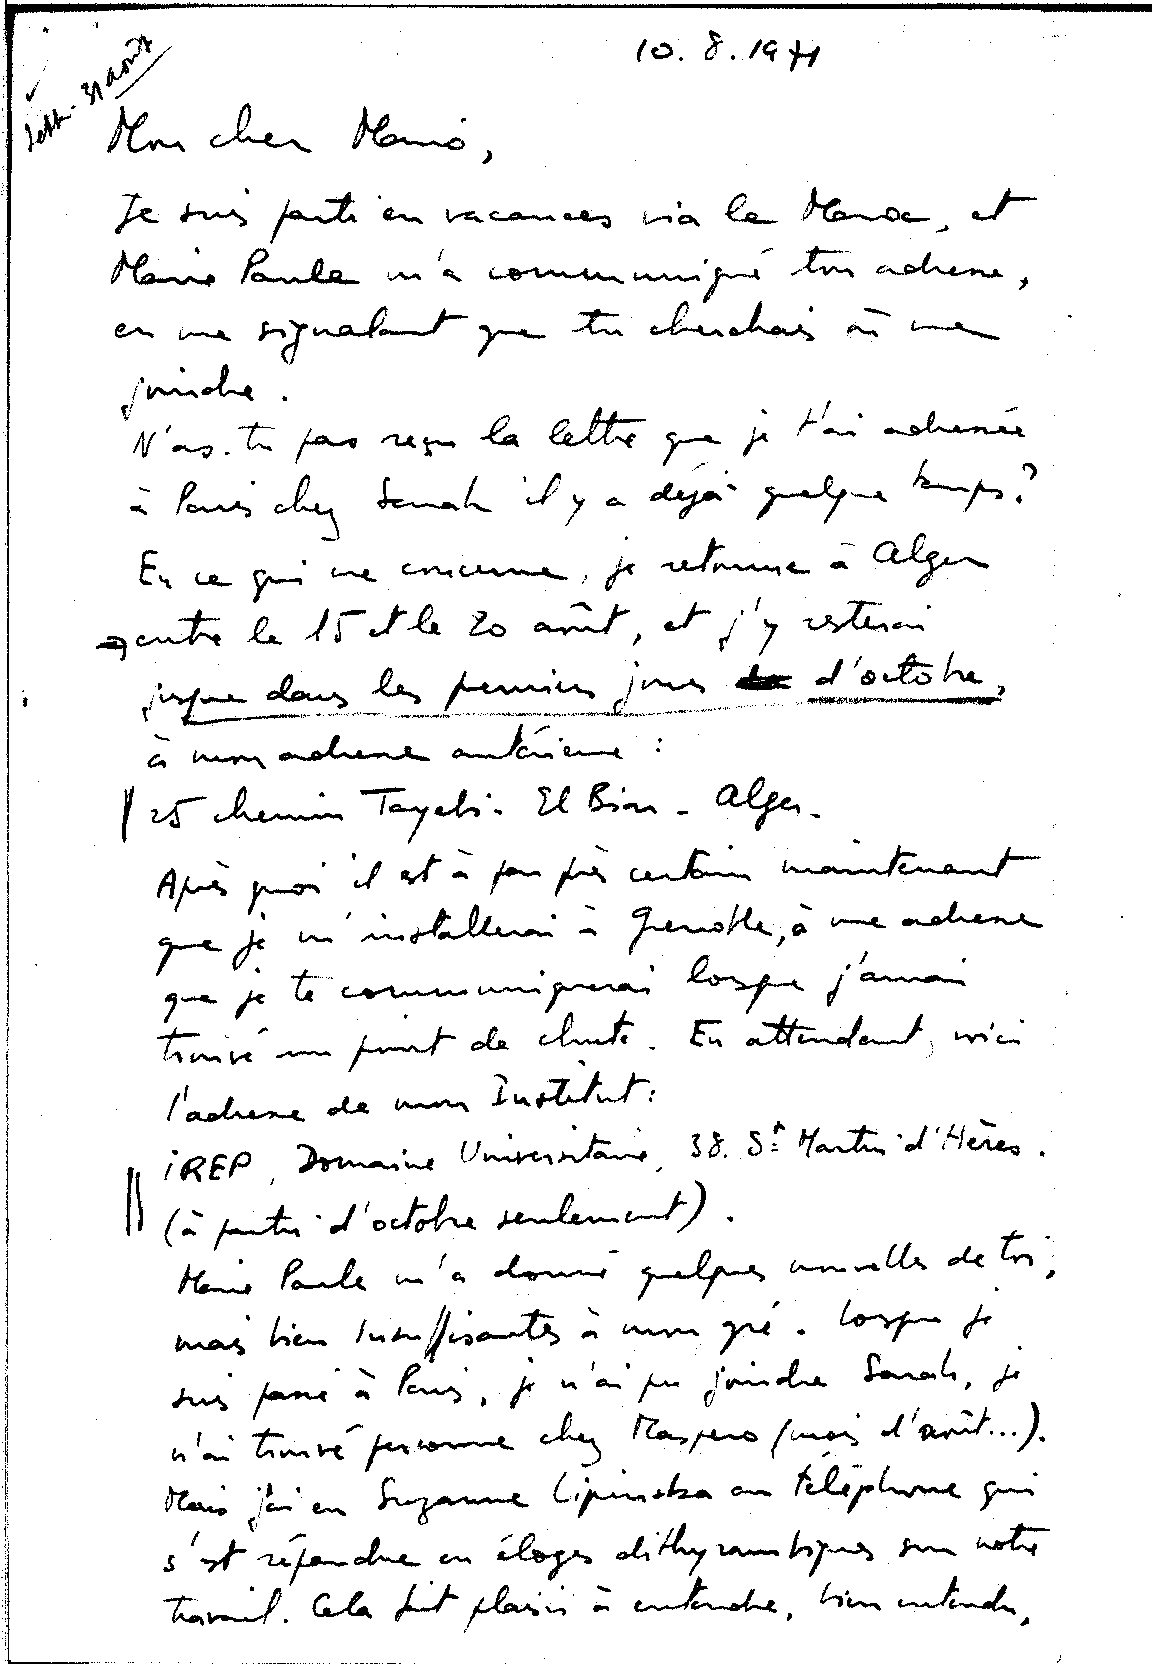 10. 8. 1971
31 août
Mon cher Mario,
Je suis parti en vacances via le Maroc, et
Marie Paule m'a communiqué ton adresse,
en me signalant que tu cherchais à me
joindre.
N'as-tu pas reçu la lettre que je t'ai adressée
à Paris chez Sarah il y a déjà quelque temps?
En ce qui me concerne, je retourne à Alger
entre le 15 et le 20 août, et j'y resterai
jusque dans les premiers jours d'octobre,
à mon adresse antérieure :
25 chemin Tayebi - El Biar - Alger.
Après quoi il est à peu près certain maintenant
que je m'installerai à Grenoble, à une adresse
que je te communiquerai lorsque j'aurai
trouvé un point de chute. En attendant, voici
l'adresse de mon Institut:
IREP, Domaine Universitaire, 38. St Martin d'Hères.
(à partir d'octobre seulement).
Marie Paule m'a donné quelques nouvelles de toi,
mais bien insuffisantes à mon gré. Lorsque je
suis passé à Paris, je n'ai pu joindre Sarah, je
n'ai trouvé personne chez Maspero (mois d'août...).
Mais j'ai eu Suzanne Lipinska au téléphone qui
s'est répandue en éloges dithyrambiques sur notre
travail. Cela fait plaisir à entendre, bien entendu,